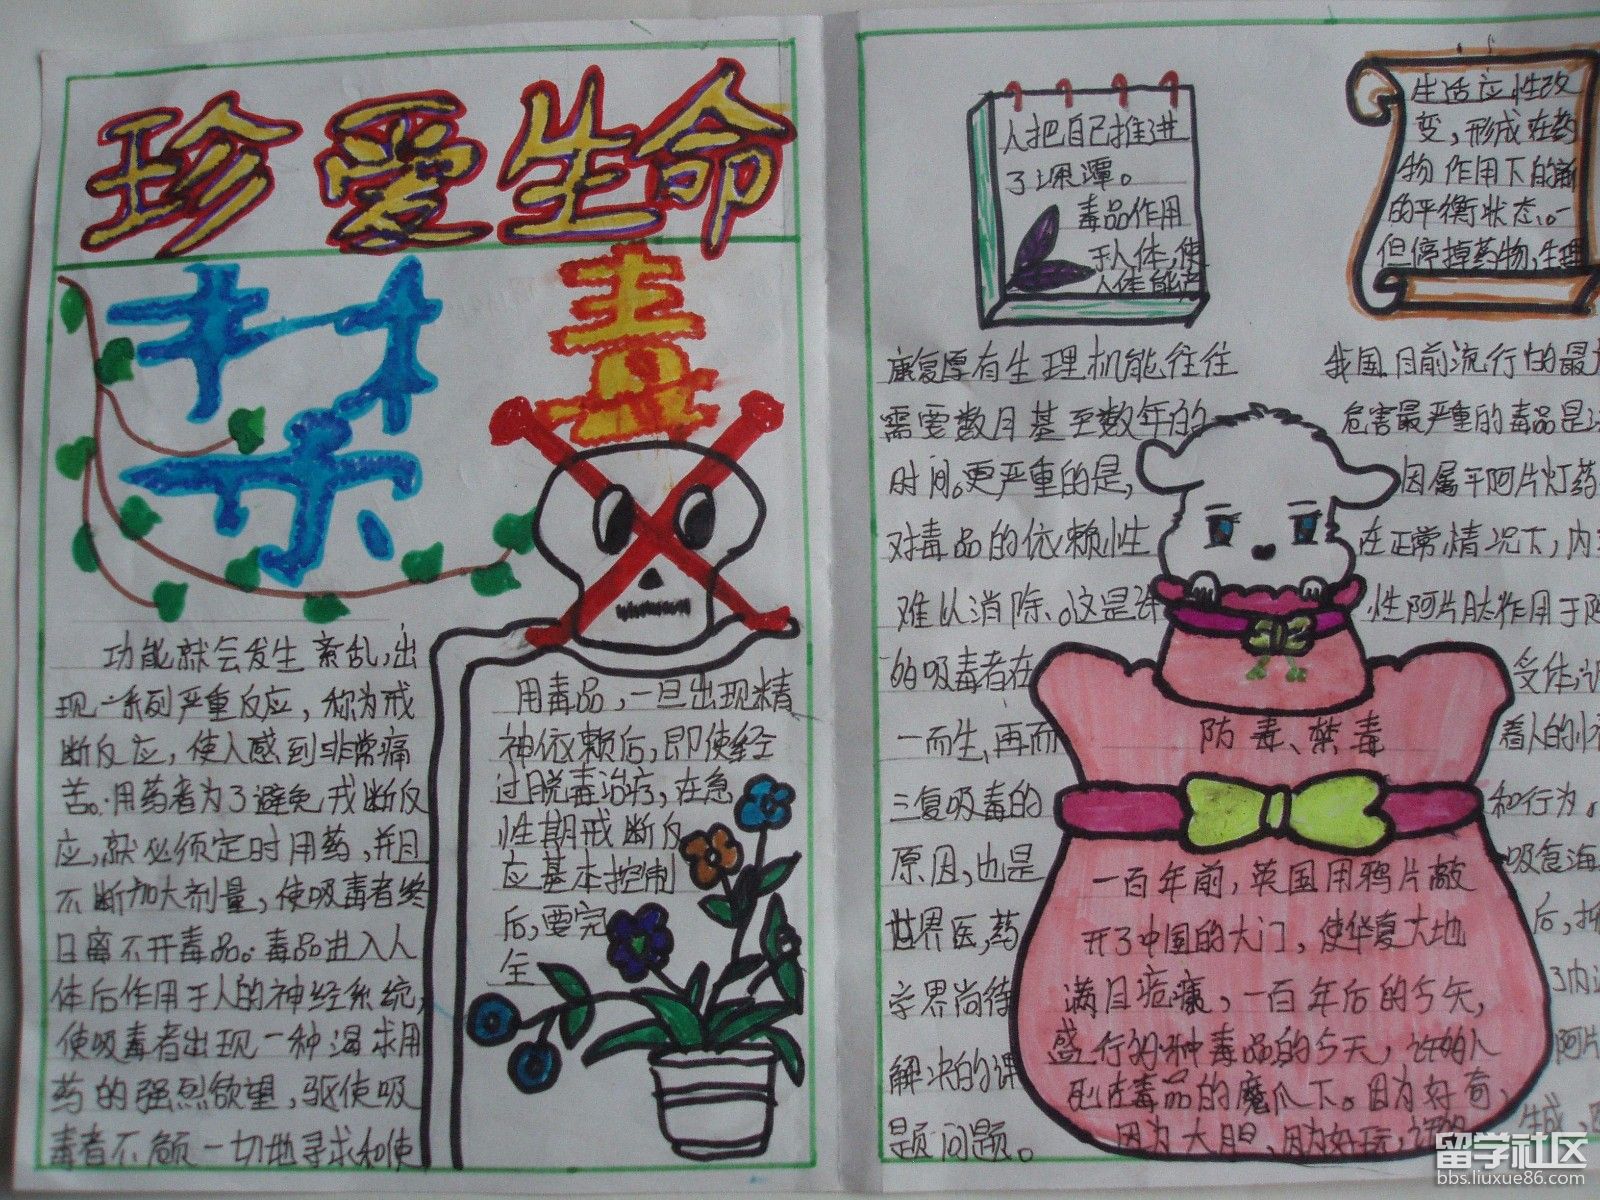 珍爱生命
禁
毒
功能就会发生紊乱,出
现一系列严重反应,称为戒
断反应,使人感到非常痛
苦。用药者为了避免戒断反
应,就必须定时用药,并且
不断加大剂量,使吸毒者终
日离不开毒品。毒品进入人
体后作用于人的神经系统,
使吸毒者出现一种渴求用
药的强烈欲望,驱使吸
毒者不顾一切地寻求和使
用毒品,一旦出现精
神依赖后,即使经
过脱毒治疗,在急
性期戒断反
应基本控制
后,要完
全
人把自己推进
了深潭。
毒品作用
于人体,使
人体能产
生适应性改
变,形成在药
物作用下的新
的平衡状态。一
但停掉药物,生理
康复原有生理机能往往
需要数月甚至数年的
时间。更严重的是,
对毒品的依赖性
难以消除。这是许
的吸毒者在
一而生、再而
三复吸毒的
原因,也是
世界医,药
学界尚待
解决的课
题问题。
我国目前流行的最
危害最严重的毒品是
因属于阿片灯药
在正常情况下,内
性阿片肽作用于阿
受体,
着人的
和行为。
吸食海
后,
了内
阿片
生成,
防毒、禁毒
一百年前,英国用鸦片敲
开了中国的大门,使华夏大地
满目疮痍,一百年后的今天,
盛行的种毒品的今天,许的人
死在毒品的魔爪下。因为好奇,
因为大胆,因为好玩,
留学社区
bbs.liuxue86.com